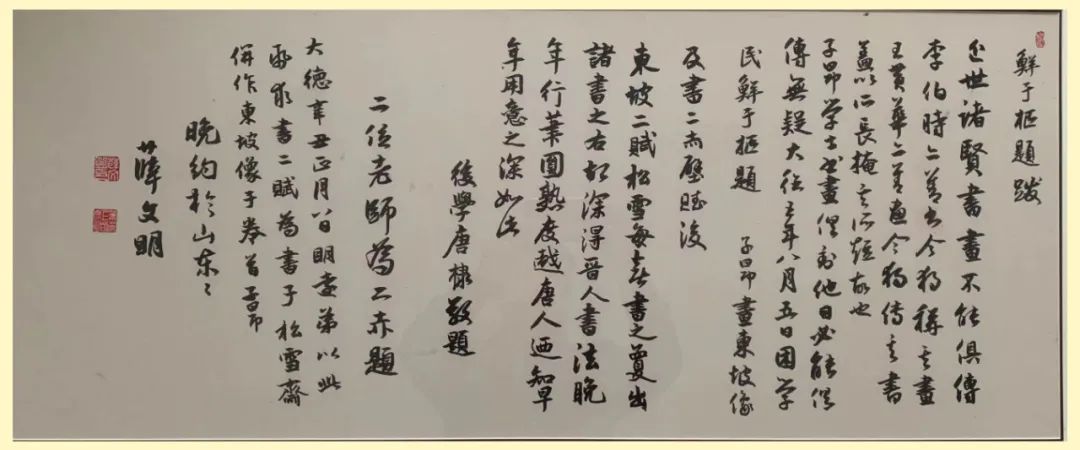 鮮于樞題跋
近世諸賢書畫不能俱傳
李伯時亦善書今獨稱其畫
王黃華亦善畫今獨傳其書
蓋以所長掩其所短故也
子昂學士書畫俱到他日必能俱
傳無疑大德五年八月五日困學
民鮮于樞題 子昂畫東坡像
及書二赤壁賦後
東坡二賦松雪每喜書之夐出
諸書之右却深得晉人書法晚
年行筆圓熟度越唐人迺知早
年用意之深如此
後學唐棣敬題
二位老師為二赤題
大德辛丑正月八日明遠弟以此
兩
書二賦為書于松雪齋
併作東坡像于卷首子昂
晚約於山東
薛文明